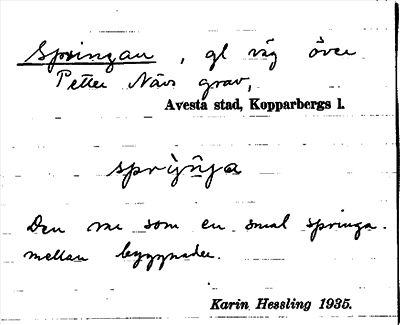 Springan, gl väg över
Petter Nävs grav,
Avesta stad, Kopparbergs l.
sprìŋa
Den var som en smal springa
mellan byggnader.
Karin Hessling 1935.